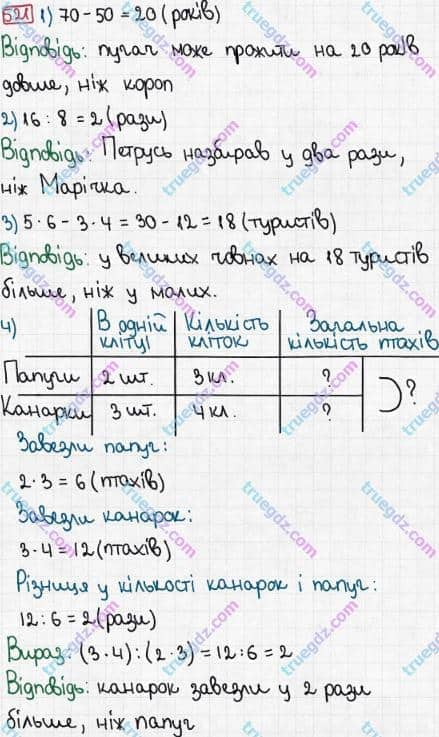 521 1) 70 - 50 = 20 (років)
Відповідь: пугач може прожити на 20 років
довше, ніж короп
2) 16 : 8 = 2 (рази)
Відповідь: Петрусь назбирав у два рази,
ніж Марічка.
3) 5 · 6 - 3 · 4 = 30 - 12 = 18 (туристів)
Відповідь: у великих човнах на 18 туристів
більше, ніж у малих.
4) В одній клітці Кількість кліток Загальна кількість птахів
Папуги 2 шт. 3 кл. ?
Канарки 3 шт. 4 кл. ?
?
Завезли папуг:
2 · 3 = 6 (птахів)
Завезли канарок:
3 · 4 = 12 (птахів)
Різниця у кількості канарок і папуг:
12 : 6 = 2 (рази)
Вираз: (3 · 4) : (2 · 3) = 12 : 6 = 2
Відповідь: канарок завезли у 2 рази
більше, ніж папуг
truegdz.com